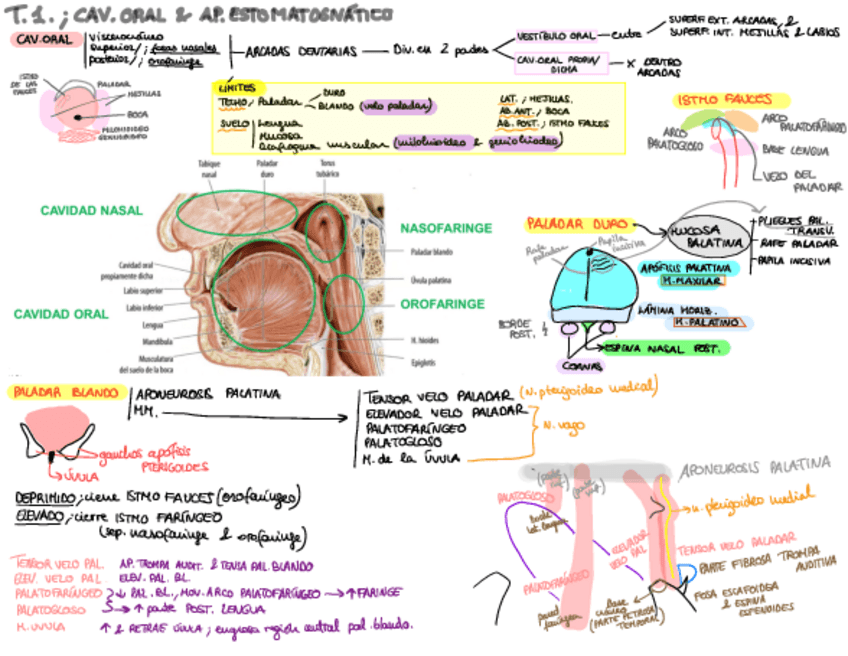 T.1.; CAV. ORAL & AP. ESTOMATOGNÁTICO
CAV. ORAL
Viscerocráneo
superior/; fosas nasales
posterior/; orofaringe
ARCADAS DENTARIAS
Div. en 2 partes
VESTÍBULO ORAL
entre
SUPERF. EXT. ARCADAS, &
SUPERF. INT. MEJILLAS & LABIOS
CAV. ORAL PROPIA/
DICHA
X DENTRO
ARCADAS
ISTMO
DE LAS
FAUCES
PALADAR
MEJILLAS
BOCA
MILOHIOIDEO
GENIOHIOIDEO
LÍMITES
TECHO; Paladar
DURO
BLANDO (velo paladar)
SUELO
Lengua
Mucosa
Diafragma muscular (milohioideo & geniohioideo)
LAT.; MEJILLAS.
AB. ANT.; BOCA
AB. POST.; ISTMO FAUCES
ISTMO FAUCES
ARCO
PALATOGLOSO
ARCO
PALATOFARÍNGEO
BASE LENGUA
VELO DEL
PALADAR
Tabique
nasal
Paladar
duro
Torus
tubárico
CAVIDAD NASAL
NASOFARINGE
Paladar blando
Cavidad oral
propiamente dicha
Labio superior
Labio inferior
Lengua
Mandíbula
Musculatura
del suelo de la boca
CAVIDAD ORAL
Úvula palatina
OROFARINGE
H. hioides
Epiglotis
PALADAR DURO
Rafe
paladar
Papila
incisiva
MUCOSA
PALATINA
PLIEGUES PAL.
TRANSV.
RAFE PALADAR
PAPILA INCISIVA
APÓFISIS PALATINA
M. MAXILAR
LÁMINA HORIZ.
M. PALATINO
BORDE
POST.
ESPINA NASAL POST.
COANAS
PALADAR BLANDO
APONEUROSIS PALATINA
MM.
TENSOR VELO PALADAR (N. pterigoideo medial)
ELEVADOR VELO PALADAR
PALATOFARÍNGEO
PALATOGLOSO
M. de la ÚVULA
N. vago
ganchos apófisis
PTERIGOIDES
ÚVULA
DEPRIMIDO; cierre ISTMO FAUCES (orofaríngeo)
ELEVADO; cierre ISTMO FARÍNGEO
(sep. nasofaringe & orofaringe)
TENSOR VELO PAL. AP. TROMPA AUDIT. & TENSA PAL. BLANDO
ELEV. VELO PAL. ELEV. PAL. BL.
PALATOFARÍNGEO ↓ PAL. BL., MOV. ARCO PALATOFARÍNGEO → ↑ FARINGE
PALATOGLOSO → ↑ parte POST. LENGUA
M. ÚVULA ↑ & RETRAE ÚVULA; engrosa región central pal. blando.
APONEUROSIS PALATINA
PALATOGLOSO
(parte
(parte
Borde
lat. lengua
n. pterigoideo medial
ELEVADOR
VELO PAL
TENSOR VELO PALADAR
PARTE FIBROSA TROMPA
AUDITIVA
PALATOFARÍNGEO
pared
faríngea
base
cráneo
(PARTE PETROSA
TEMPORAL)
FOSA ESCAFOIDEA
& ESPINA
ESFENOIDES